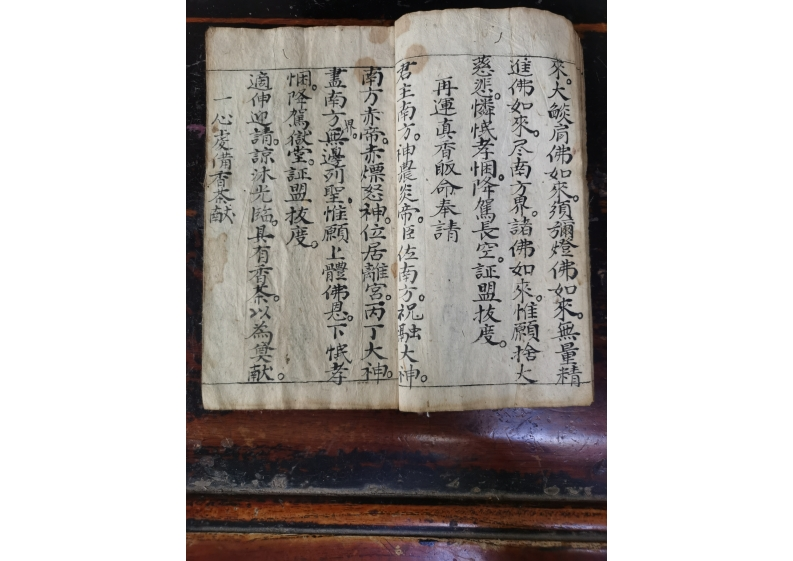 來。大燄肩佛如來。須彌燈佛如來。無量精
進佛如來。尽南方界。諸佛如來。惟願捨大
慈悲。憐憫孝悃。降駕長空。証盟拔度。
再運真香皈命奉請
君主南方。神農炎帝。臣佐南方。祝融大神。
南方赤帝。赤熛怒神。位居離宮。丙丁大神。
盡南方無邊界。列聖。惟願上體佛恩。下憫孝
悃。降駕嶽堂。証盟拔度。
適伸迎請。諒沐光臨。具有香茶。以為奠献。
一心虔備香茶献